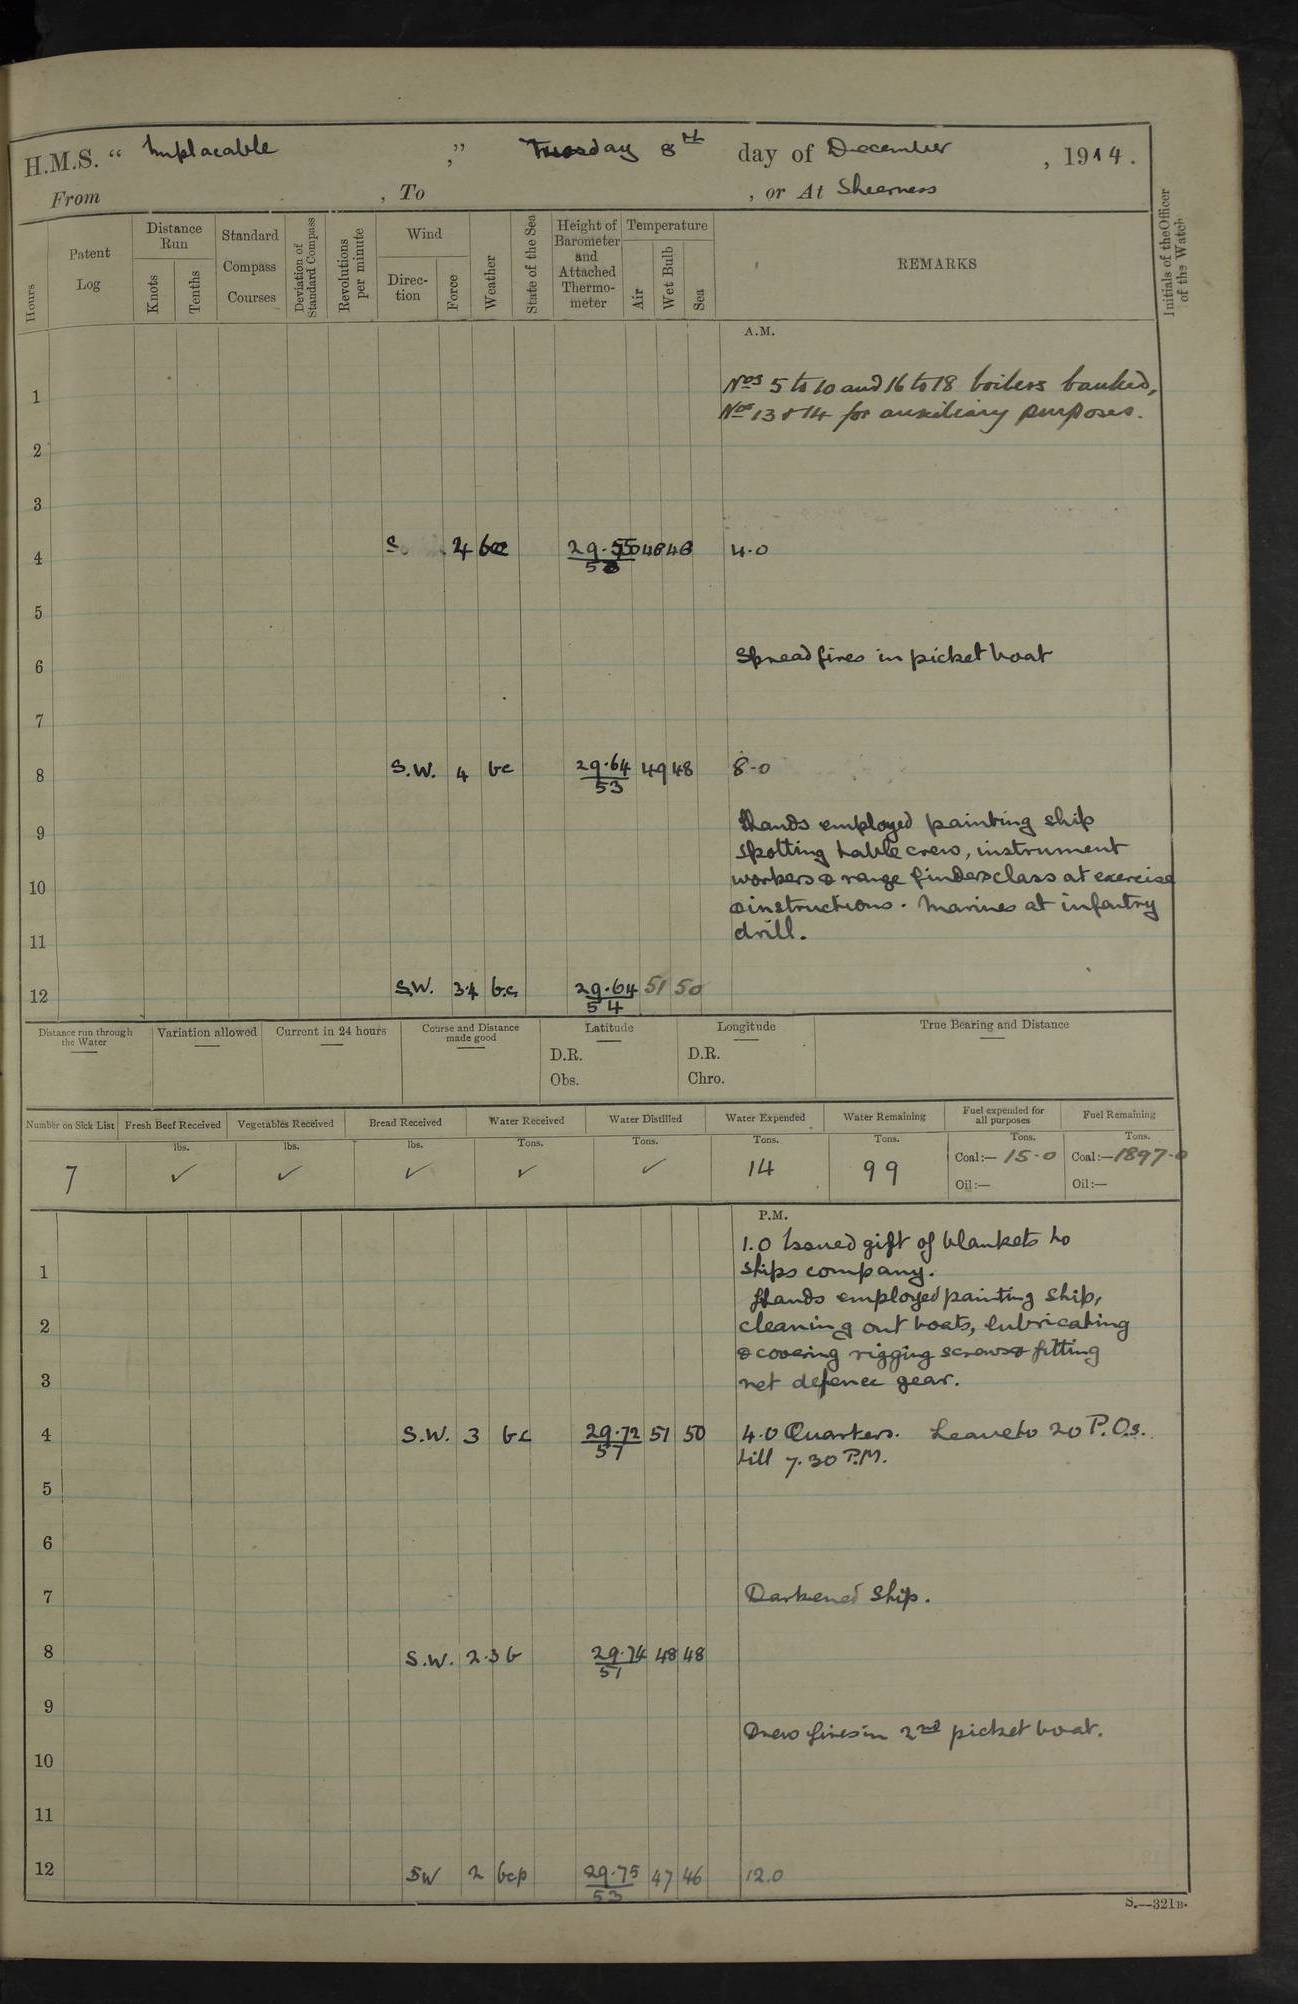 H.M.S. “ Implacable ,” Tuesday 8th day of December , 1914.
From , To , or At Sheerness
Hours
Patent Log
Distance Run
Knots
Tenths
Standard Compass Courses
Deviation of Standard Compass
Revolutions per minute
Wind
Direc-tion
Force
Weather
State of the Sea
Height of Barometer and Attached Thermo-meter
Temperature
Air
Wet Bulb
Sea
REMARKS
Initials of the Officer of the Watch
A.M.
Nos 5 to 10 and 16 to 18 boilers banked,
1
Nos 13 & 14 for auxiliary purposes.
2
3
4 S. 4 29.55 48 48 4.0
5
6 Spread fires in picket boat
7
8 S.W. 4 bc 29.64 49 48 8.0
53
Hands employed painting ship
9 spotting table crew, instrument
10 workers & range finders class at exercise
& instructions. Marines at infantry
11 drill.
12 S.W. 3.4 b.c. 29.64 51 50
54
Distance run through the Water
Variation allowed
Current in 24 hours
Course and Distance made good
Latitude
D.R.
Obs.
Longitude
D.R.
Chro.
True Bearing and Distance
Number on Sick List
Fresh Beef Received
Vegetables Received
Bread Received
Water Received
Water Distilled
Water Expended
Water Remaining
Fuel expended for all purposes
Fuel Remaining
lbs. lbs. lbs. Tons. Tons. Tons. Tons. Tons. Tons.
7 ✓ ✓ ✓ ✓ ✓ 14 99 Coal:— 15.0 Coal:— 1897.0
Oil:— Oil:—
P.M.
1.0 Issued gift of blankets to
1 ships company.
Hands employed painting ship,
2 cleaning out boats, lubricating
& covering rigging screws & fitting
3 net defence gear.
4 S.W. 3 bc 29.72 51 50 4.0 Quarters. Leave to 20 P.O.s.
57 till 7.30 P.M.
5
6
7 Darkened Ship.
8 S.W. 2.3 b 29.74 48 48
51
9
Drew fires in 2nd picket boat.
10
11
12 SW 2 bcp 29.75 47 46 12.0
53
S.—321B.